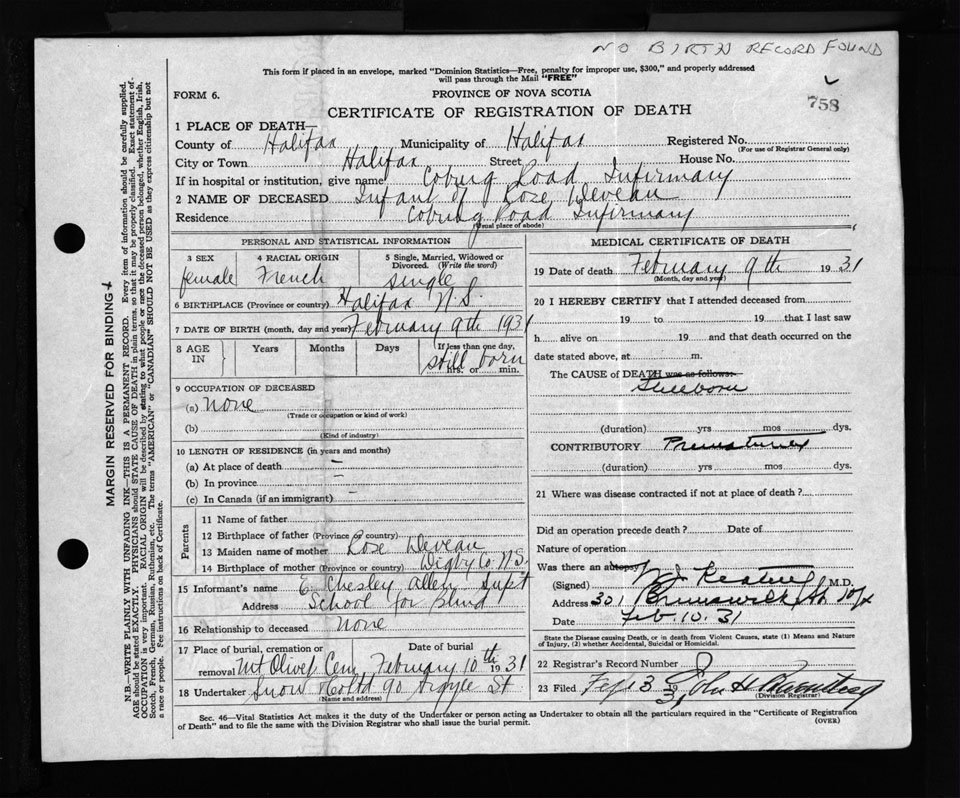 NO BIRTH RECORD FOUND
This form if placed in an envelope, marked "Dominion Statistics—Free, penalty for improper use, $300," and properly addressed
will pass through the Mail "FREE"
FORM 6.
PROVINCE OF NOVA SCOTIA
758
CERTIFICATE OF REGISTRATION OF DEATH
1 PLACE OF DEATH—
County of Halifax Municipality of Halifax Registered No.
(For use of Registrar General only)
City or Town Halifax Street House No.
If in hospital or institution, give name Coburg Road Infirmary
2 NAME OF DECEASED Infant of Rose Deveau
Residence Coburg Road Infirmary
(Usual place of abode)
PERSONAL AND STATISTICAL INFORMATION
3 SEX 4 RACIAL ORIGIN 5 Single, Married, Widowed or
Divorced. (Write the word)
female French single
6 BIRTHPLACE (Province or country) Halifax N.S.
7 DATE OF BIRTH (month, day and year) February 9th 1931
8 AGE IN Years Months Days If less than one day,
still born
hrs. or min.
9 OCCUPATION OF DECEASED
(a) None
(Trade or occupation or kind of work)
(b)
(Kind of industry)
10 LENGTH OF RESIDENCE (in years and months)
(a) At place of death —
(b) In province —
(c) In Canada (if an immigrant) —
Parents
11 Name of father
12 Birthplace of father (Province or country)
13 Maiden name of mother Rose Deveau
14 Birthplace of mother (Province or country) Digby Co. N.S.
15 Informant's name E. Chesley Allen Supt
Address School for Blind
16 Relationship to deceased None
17 Place of burial, cremation or Date of burial
removal Mt Olivet Cem, February 10th 1931
18 Undertaker Snow & Co Ltd 90 Argyle St
(Name and address)
MEDICAL CERTIFICATE OF DEATH
19 Date of death February 9th 1931
(Month, day and year)
20 I HEREBY CERTIFY that I attended deceased from
19 to 19 that I last saw
h alive on 19 and that death occurred on the
date stated above, at m.
The CAUSE of DEATH was as follows:
Stillborn
(duration) yrs mos dys.
CONTRIBUTORY Prematurity
(duration) yrs mos dys.
21 Where was disease contracted if not at place of death?
Did an operation precede death? Date of
Nature of operation
Was there an autopsy
(Signed) M.D.
Address 301 Brunswick St Hfx
Date Feb. 10. 31
State the Disease causing Death, or in death from Violent Causes, state (1) Means and Nature
of Injury, (2) whether Accidental, Suicidal or Homicidal.
22 Registrar's Record Number
23 Filed John H
(Division Registrar)
Sec. 46—Vital Statistics Act makes it the duty of the Undertaker or person acting as Undertaker to obtain all the particulars required in the "Certificate of Registration
of Death" and to file the same with the Division Registrar who shall issue the burial permit.
(OVER)
MARGIN RESERVED FOR BINDING
N.B.—WRITE PLAINLY WITH UNFADING INK—THIS IS A PERMANENT RECORD. Every item of information should be carefully supplied.
AGE should be stated EXACTLY. PHYSICIANS should STATE CAUSE OF DEATH in plain terms, so that it may be properly classified. Exact statement of
OCCUPATION is very important. RACIAL ORIGIN will be described by stating to what people or race the deceased person belonged, whether English, Irish,
Scotch, French, German, Russian, Ruthenian, etc. The terms "AMERICAN" or "CANADIAN" SHOULD NOT BE USED as they express citizenship but not
a race or people. Fee instructions on back of Certificate.